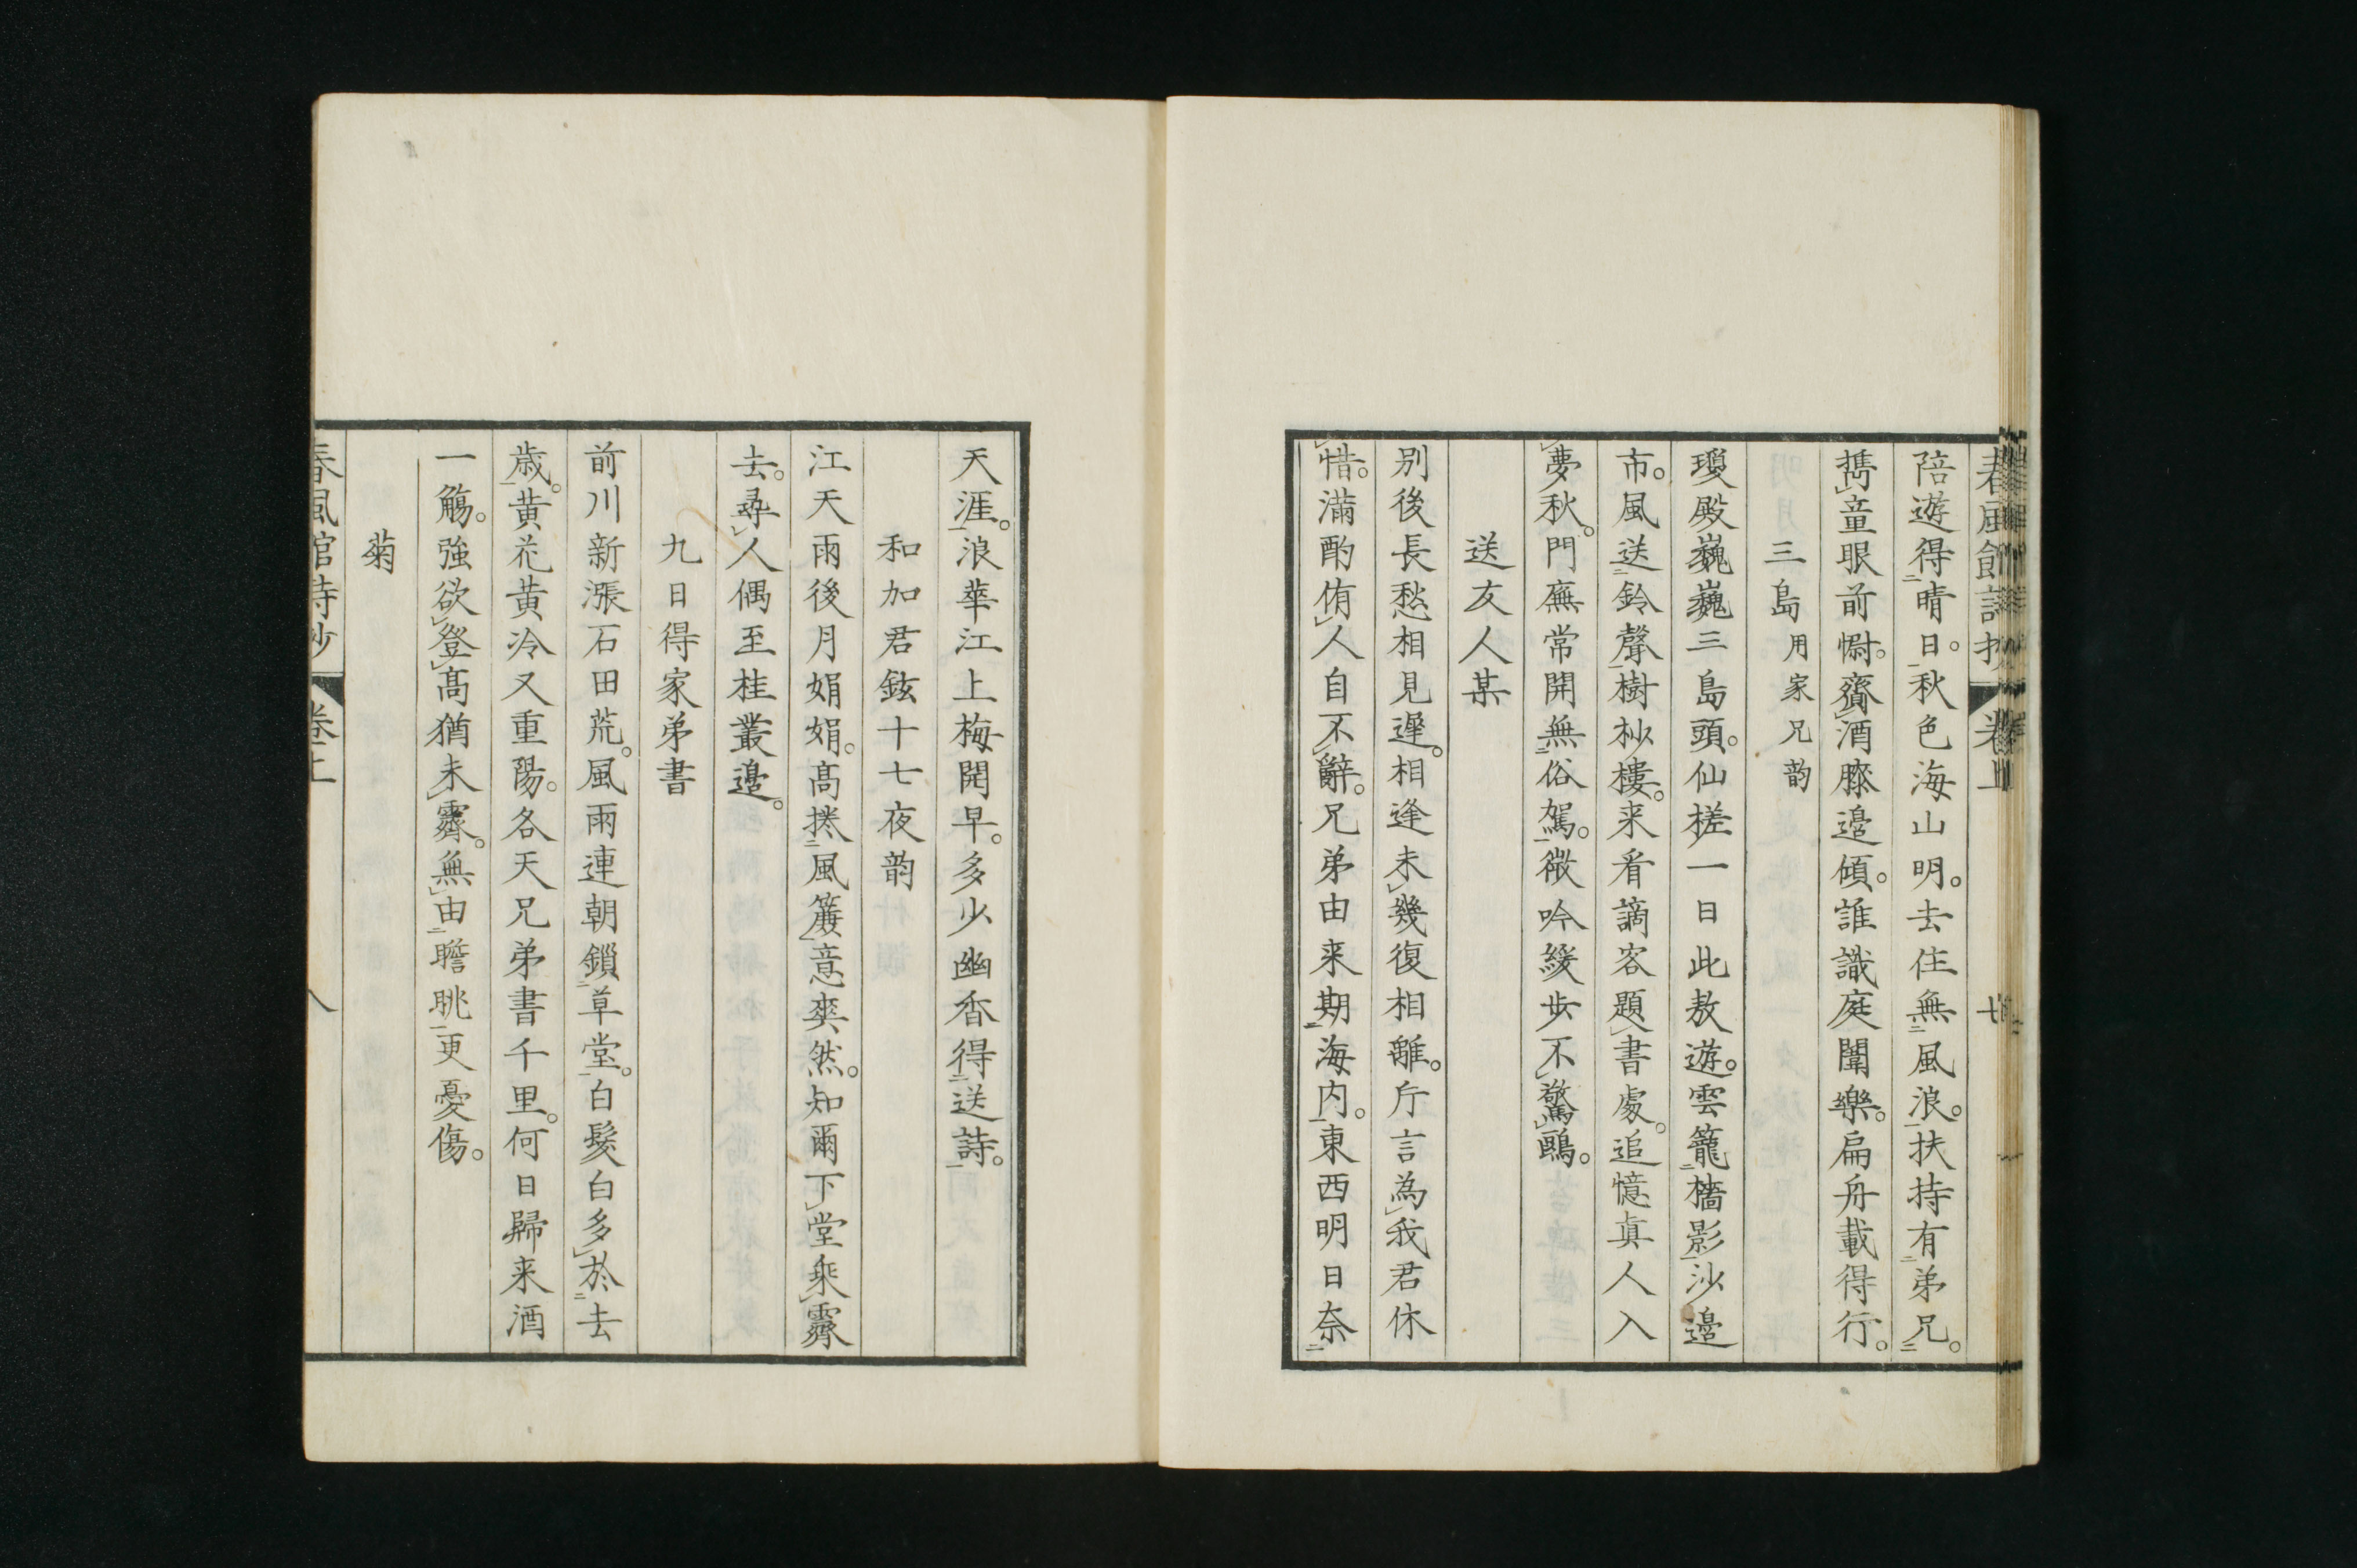 春風館詩抄 卷上 七
陪遊得晴日。秋色海山明。去住無風浪。扶持有弟兄。
携童眼前慰。齎酒膝邉傾。誰識庭闈樂。扁舟載得行。
三島用家兄韵
瓊殿巍巍三島頭。仙槎一日此敖遊。雲籠檣影沙邉
市。風送鈴聲樹杪樓。来看謫客題書處。追憶真人入
夢秋。門廡常開無俗駕。微吟緩歩不驚鷗。
送友人某
別後長愁相見遲。相逢未幾復相離。斤言為我君休
惜。滿酌侑人自不辭。兄弟由来期海内。東西明日奈
天涯。浪華江上梅開早。多少幽香得送詩。
和加君鉉十七夜韵
江天雨後月娟娟。髙捲風簾意爽然。知爾下堂乘霽
去。尋人偶至桂叢邉。
九日得家弟書
前川新漲石田荒。風雨連朝鎖草堂。白髮白多於去
歳。黄花黄冷又重陽。各天兄弟書千里。何日歸来酒
一觴。強欲登髙猶未霽。無由瞻眺更憂傷。
菊
春風館詩抄 卷上 八